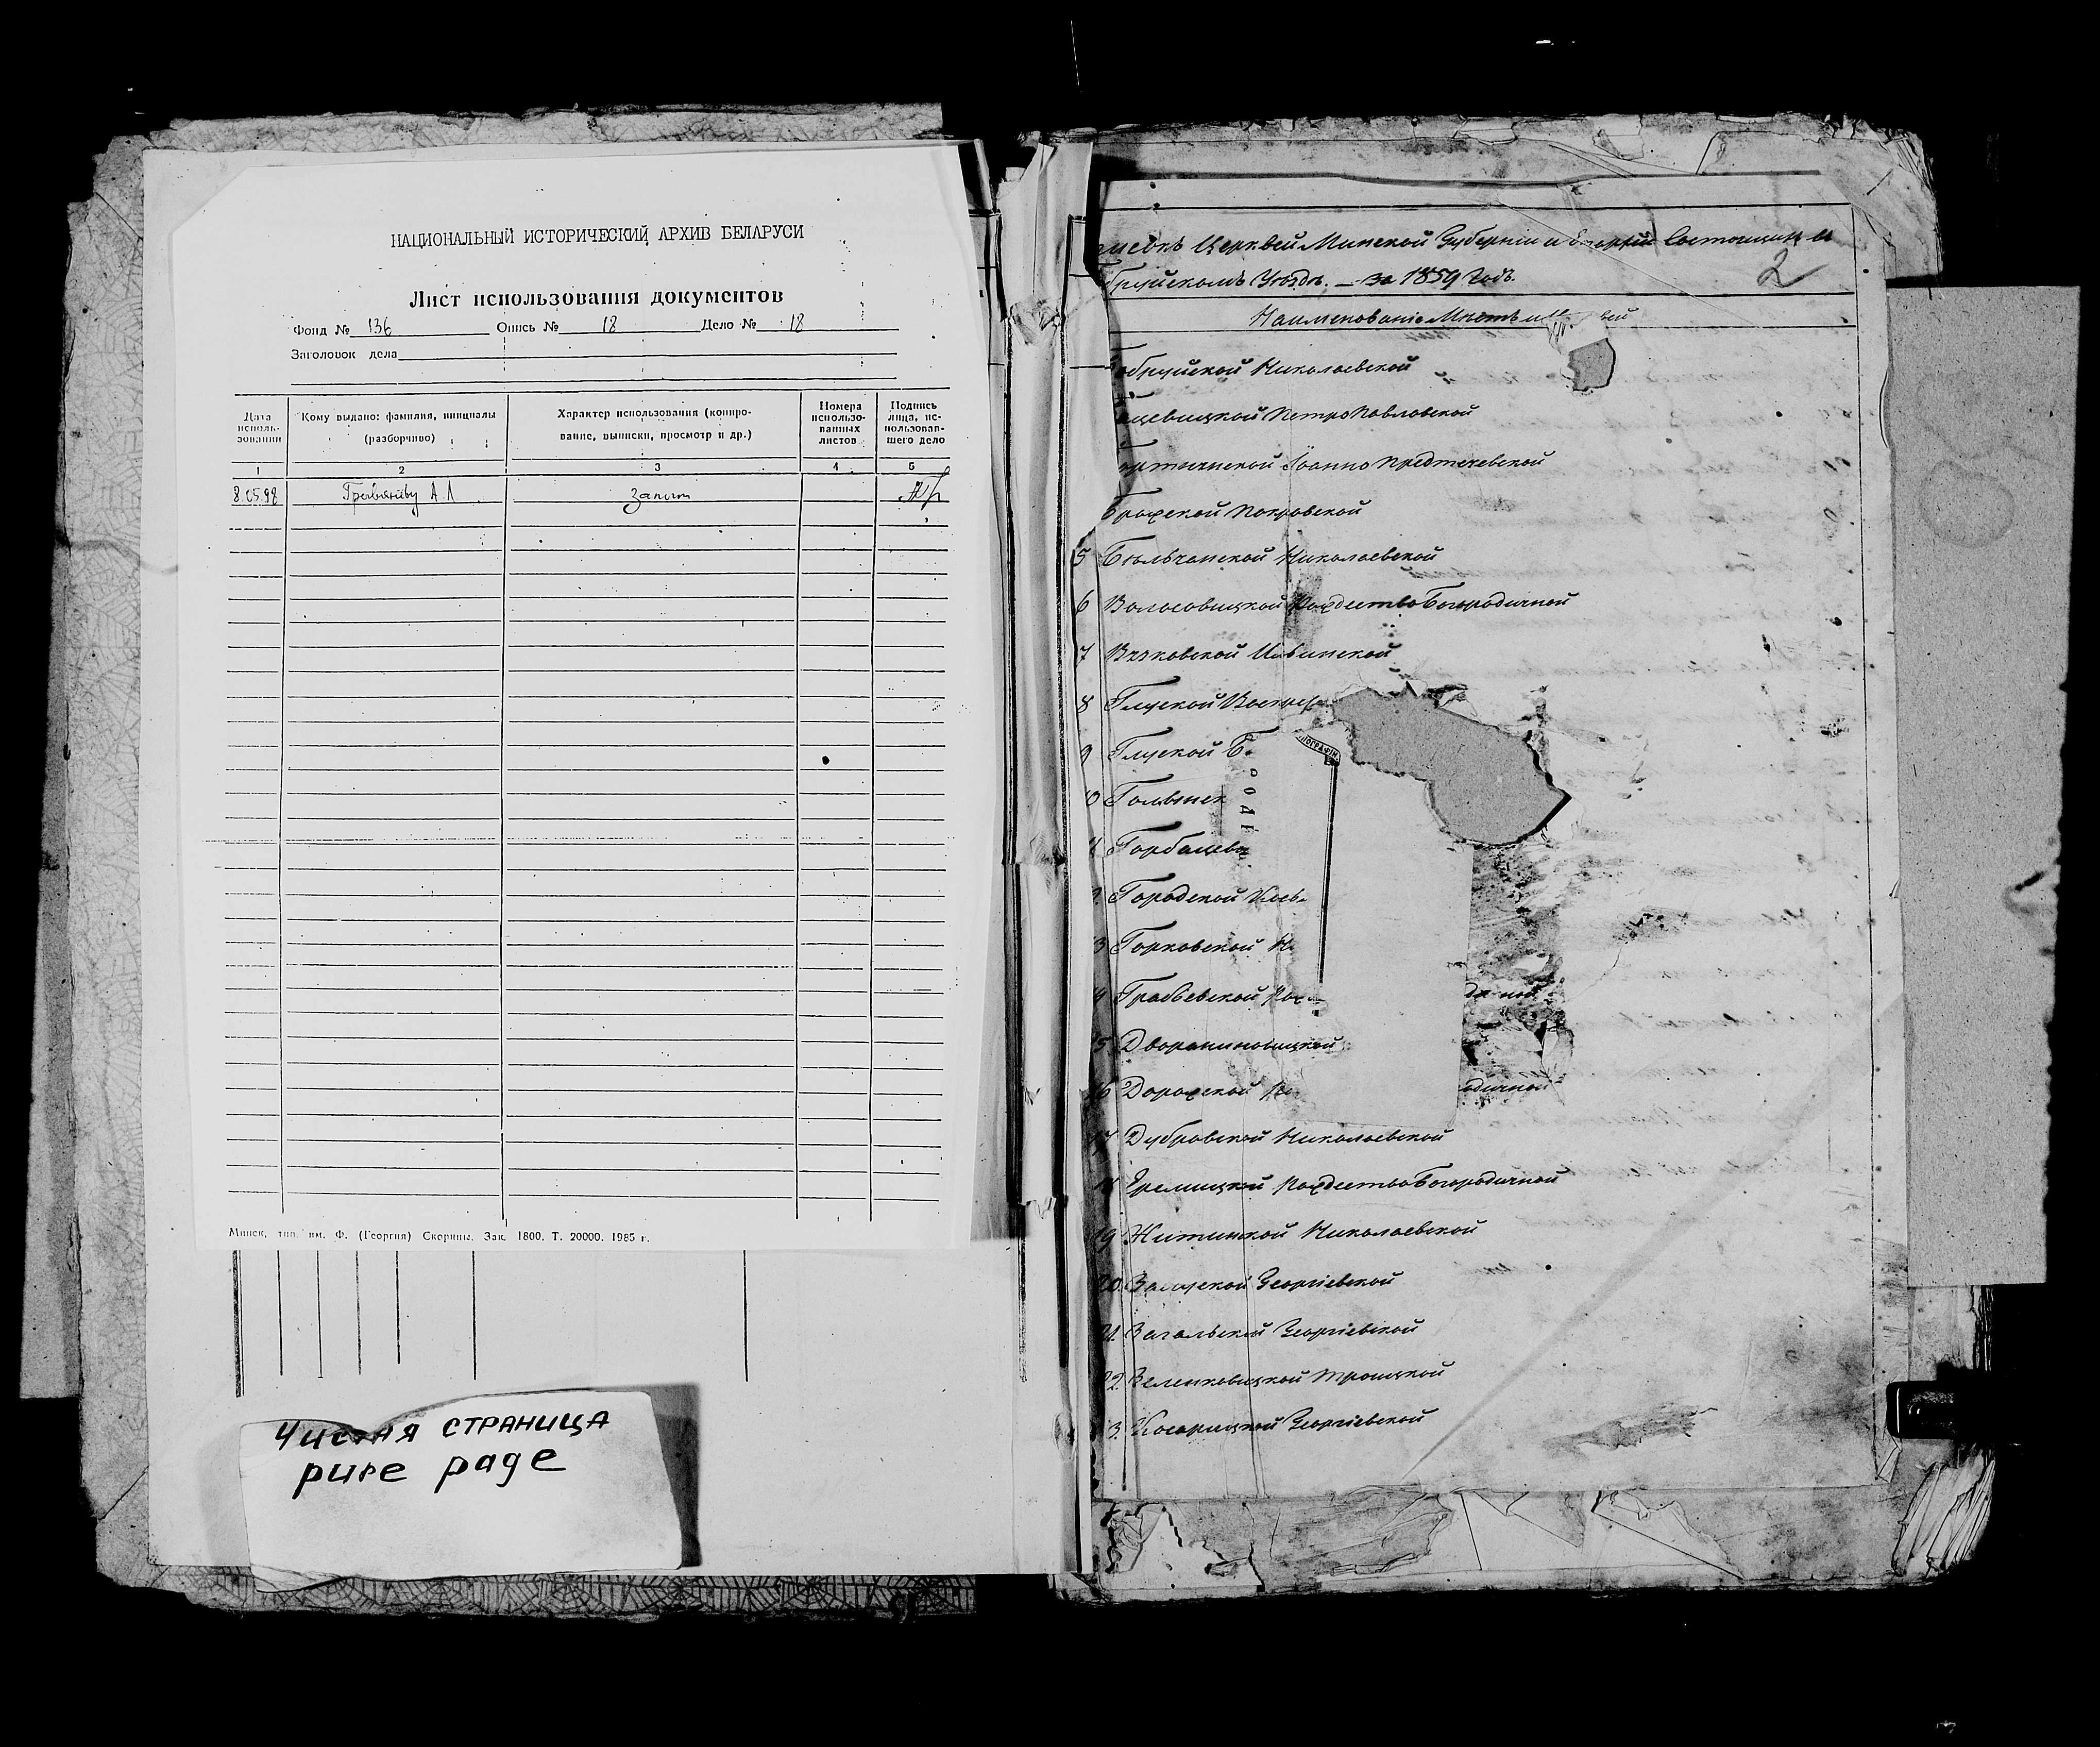 НАЦИОНАЛЬНЫЙ ИСТОРИЧЕСКИЙ АРХИВ БЕЛАРУСИ
Лист использования документов
Фонд № 136 Опись № 18 Дело № 18
Заголовок дела
Дата исполь-зования
Кому выдано: фамилия, инициалы (разборчиво)
Характер использования (копиро-вание, выписки, просмотр и др.)
Номера использо-ванных листов
Подпись лица, ис-пользовав-шего дело
1 2 3 4 5
8.05.98
Минск, тип. им. Ф. (Георгия) Скорины. Зак. 1800. Т. 20000. 1985 г.
Чистая страница
pure page
Церквей Минской Губерніи и Состоящих въ
2
бруйскомъ Уѣздѣ. — За 1859 Годъ.
Наименованіе Мѣстъ и
обруйской Николаевской
ацевицкой Петропавловской
Іоанно Предтечевской
Брожской Покровской
5 Бѣльчанской Николаевской
6 Волосовицкой Рождество Богородичной
7 Вячковской Ильинской
8 Глуской Воскре
9 Глуской Б
10
Горбацев
Городской
Горковской Н
Рож
15
16 Дорожской дичной
17 Дубровской Николаевской
Еремицкой Рождество Богородичной
19 Житинской Николаевской
20. Георгіевской
21. Загальской Георгіевской
22. Зеленковицкой Троицкой
3. Косарицкой Георгіевской